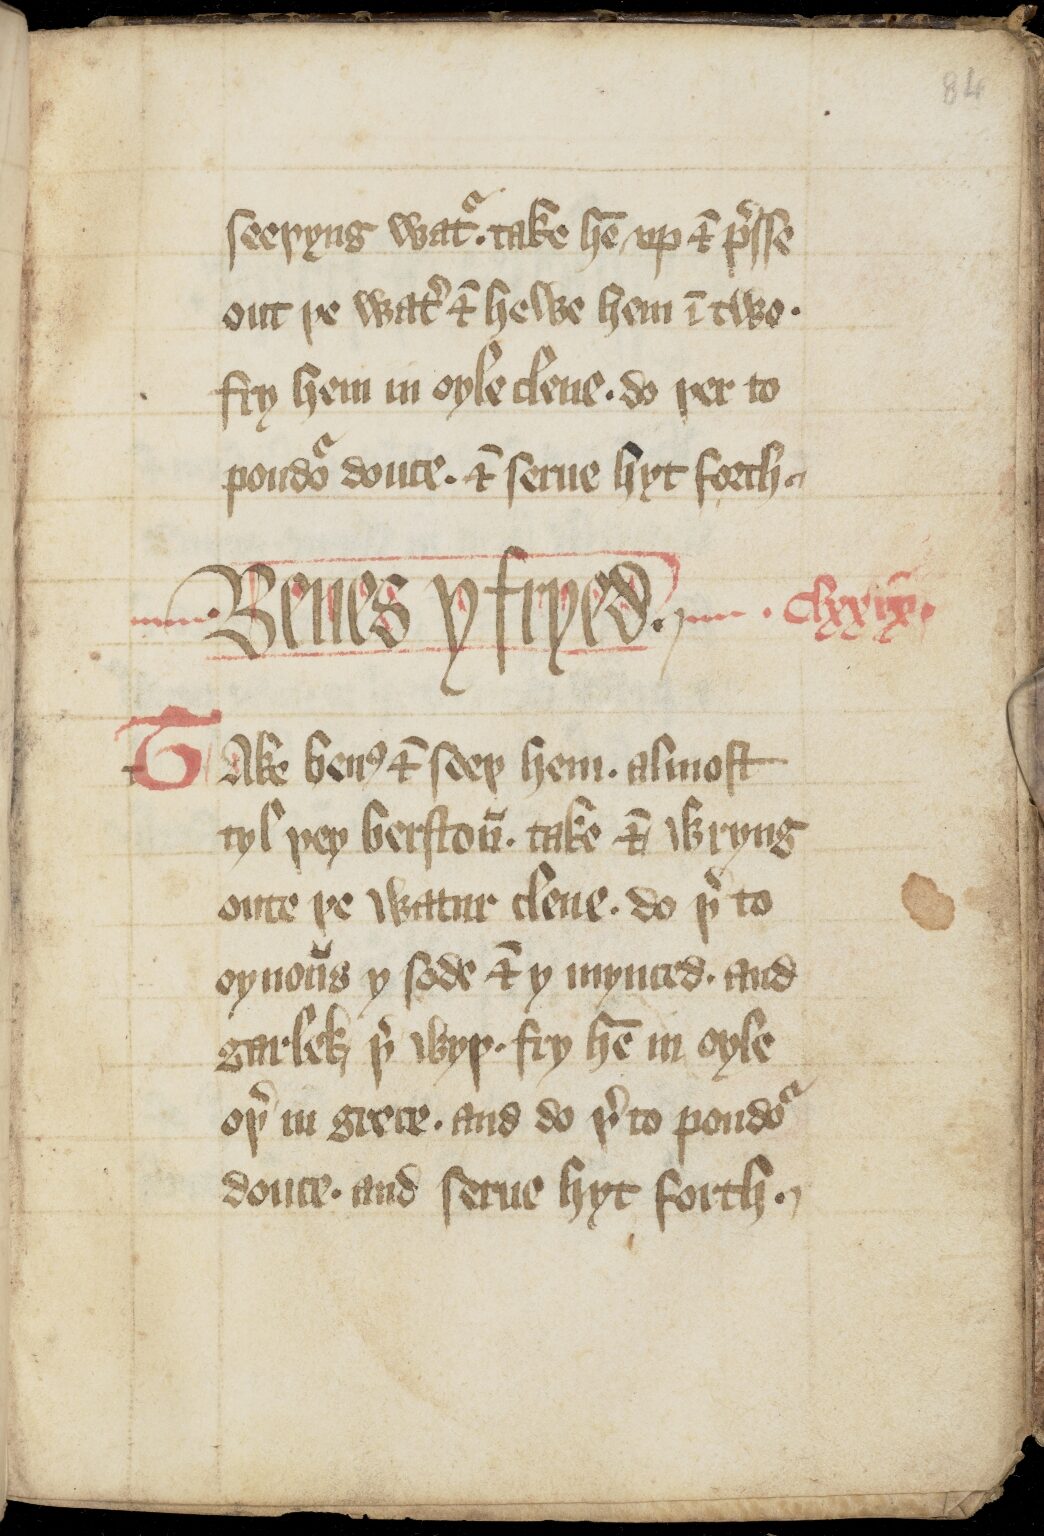 84
seeþyng watᵃ. take hē up ⁊̄ p̓sse
out þe wat̓ ⁊̄ hewe hem ī two.
fry hem in oyle clene. do þer to
poudoᵃ douce. ⁊̄ serue hyt forth.
Benes y fryed. clxxix.
TAke benꝯ ⁊̄ seeþ hem. almost
tyl þey berstoū. take ⁊̄ wryng
oute þe watur clene. do þ̓ to
oynoūs y sode ⁊̄ y mynced. and
garlek þ̓ wyþ. fry hē in oyle
oþ̓ in grece. and do þ̓ to poudoᵃ
douce. and serue hyt forth.